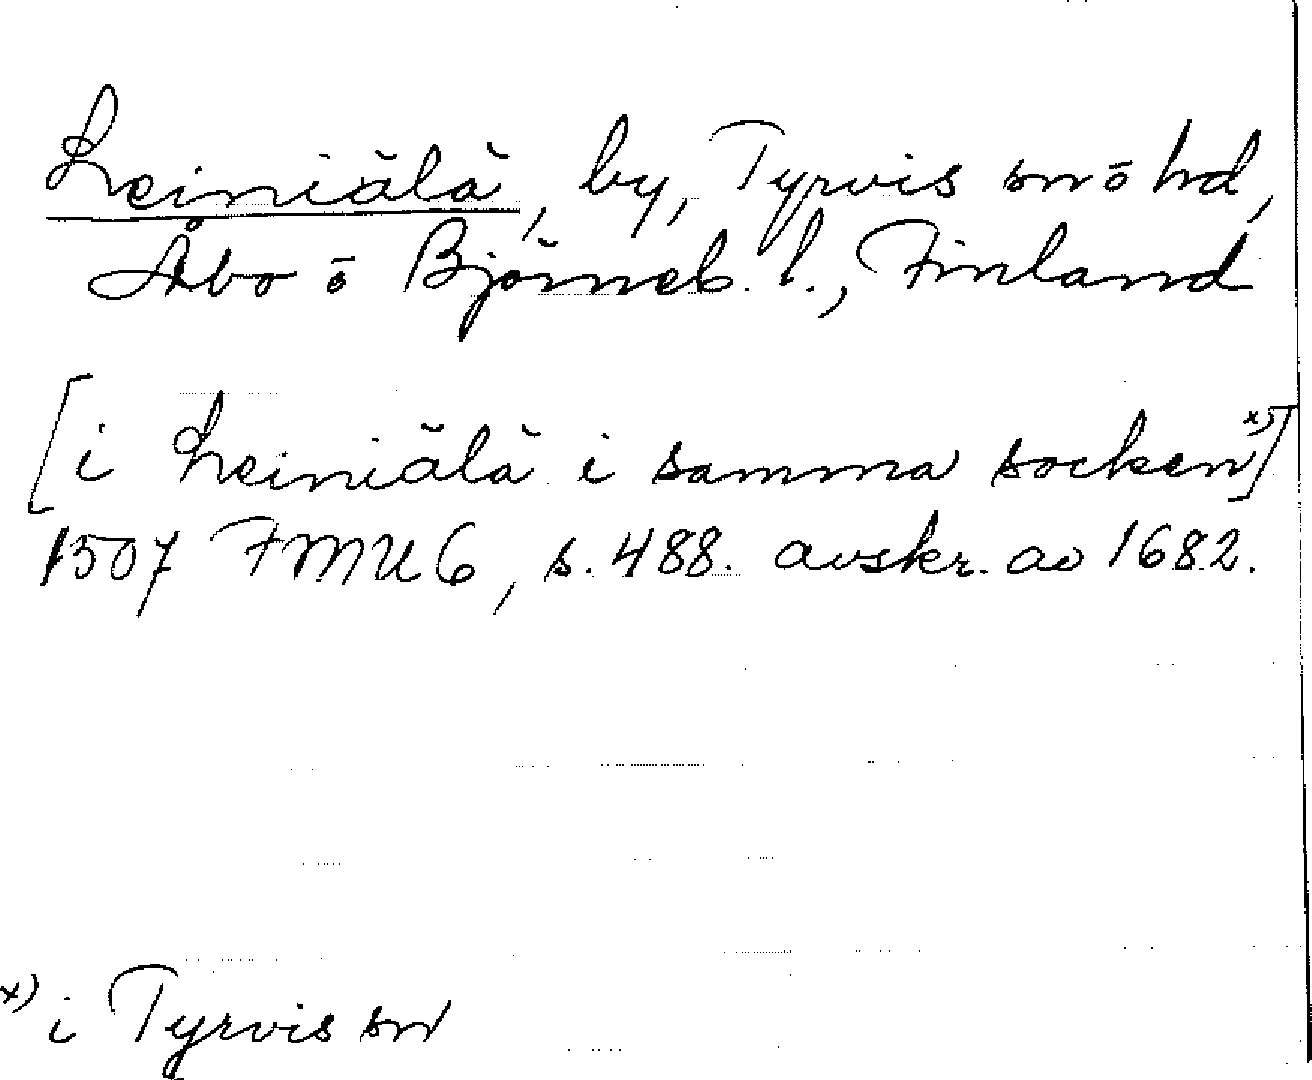 Leiniälä, by, Tyrvis sn ō hd,
Åbo ō Björneb. l., Finland
[i Leiniälä i samma socken x)]
1507 FMU 6, s. 488. avskr. av 1682.
x) i Tyrvis sn